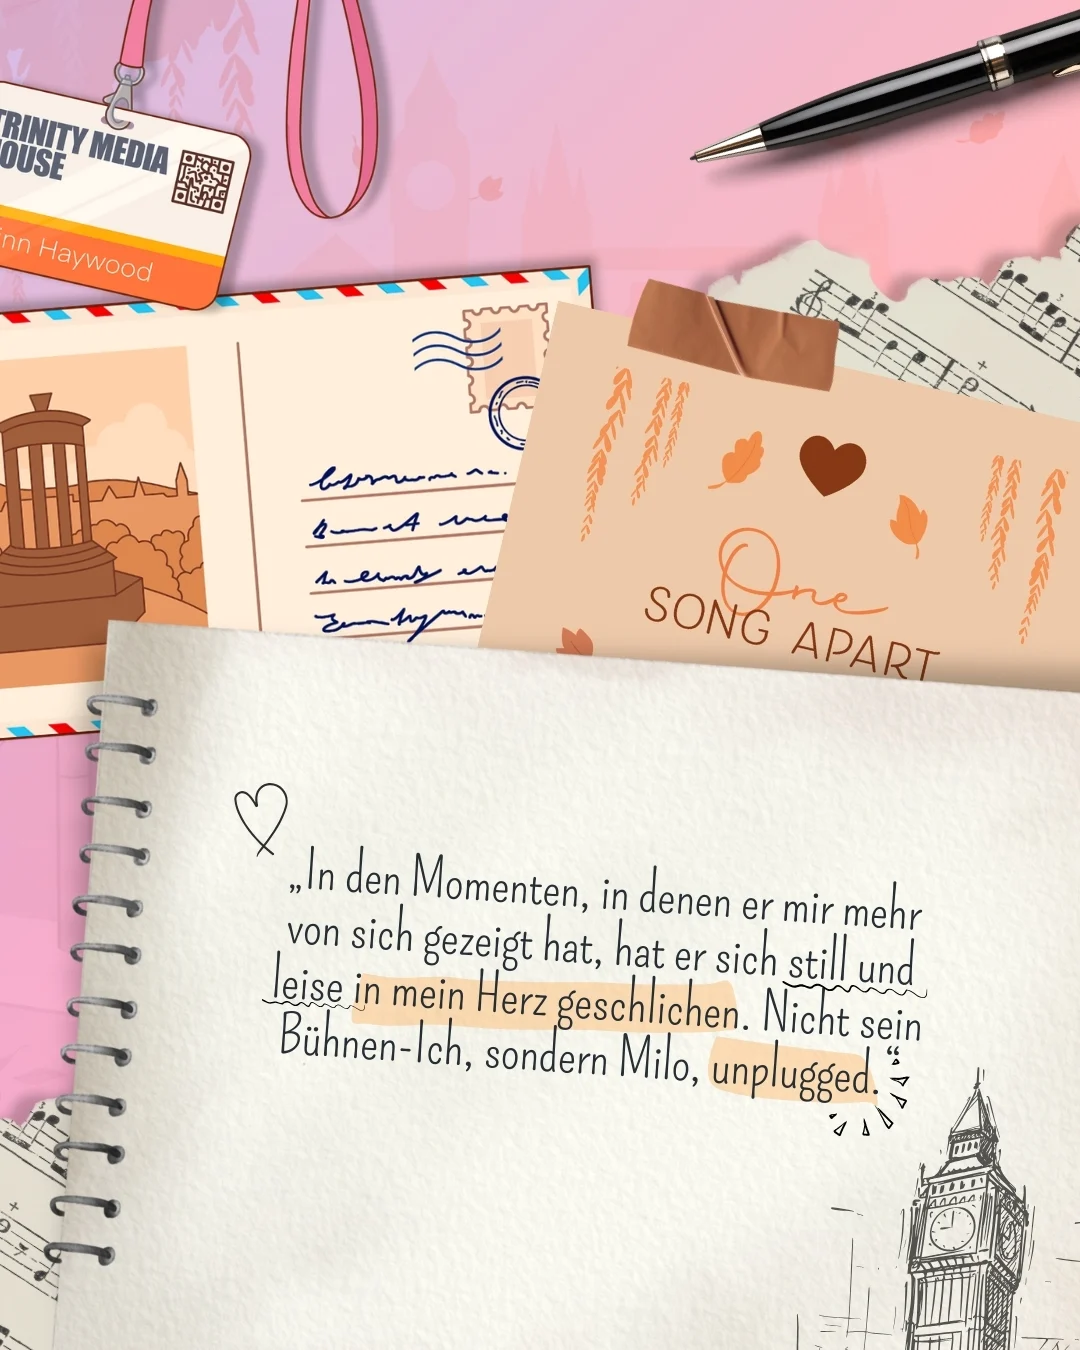 TRINITY MEDIA
HOUSE
Haywood
One
SONG APART
„In den Momenten, in denen er mir mehr
von sich gezeigt hat, hat er sich still und
leise in mein Herz geschlichen. Nicht sein
Bühnen-Ich, sondern Milo, unplugged.“